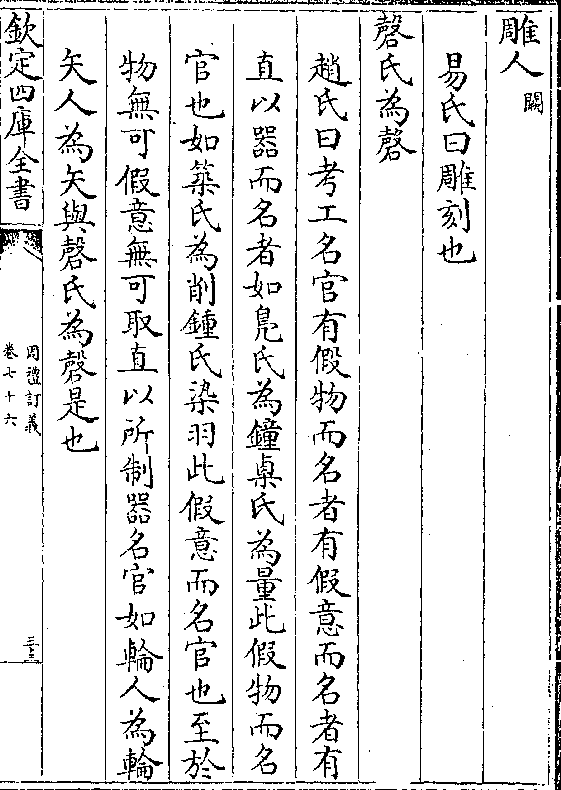 雕人闕
易氏曰雕刻也
磬氏為磬
趙氏曰考工名官有假物而名者有假意而名者有
直以器而名者如鳧氏為鐘㮚氏為量此假物而名
官也如築氏為削鍾氏染羽此假意而名官也至於
物無可假意無可取直以所制器名官如輪人為輪
矢人為矢與磬氏為磬是也
欽定四庫全書
周禮訂義
卷七十六
三三